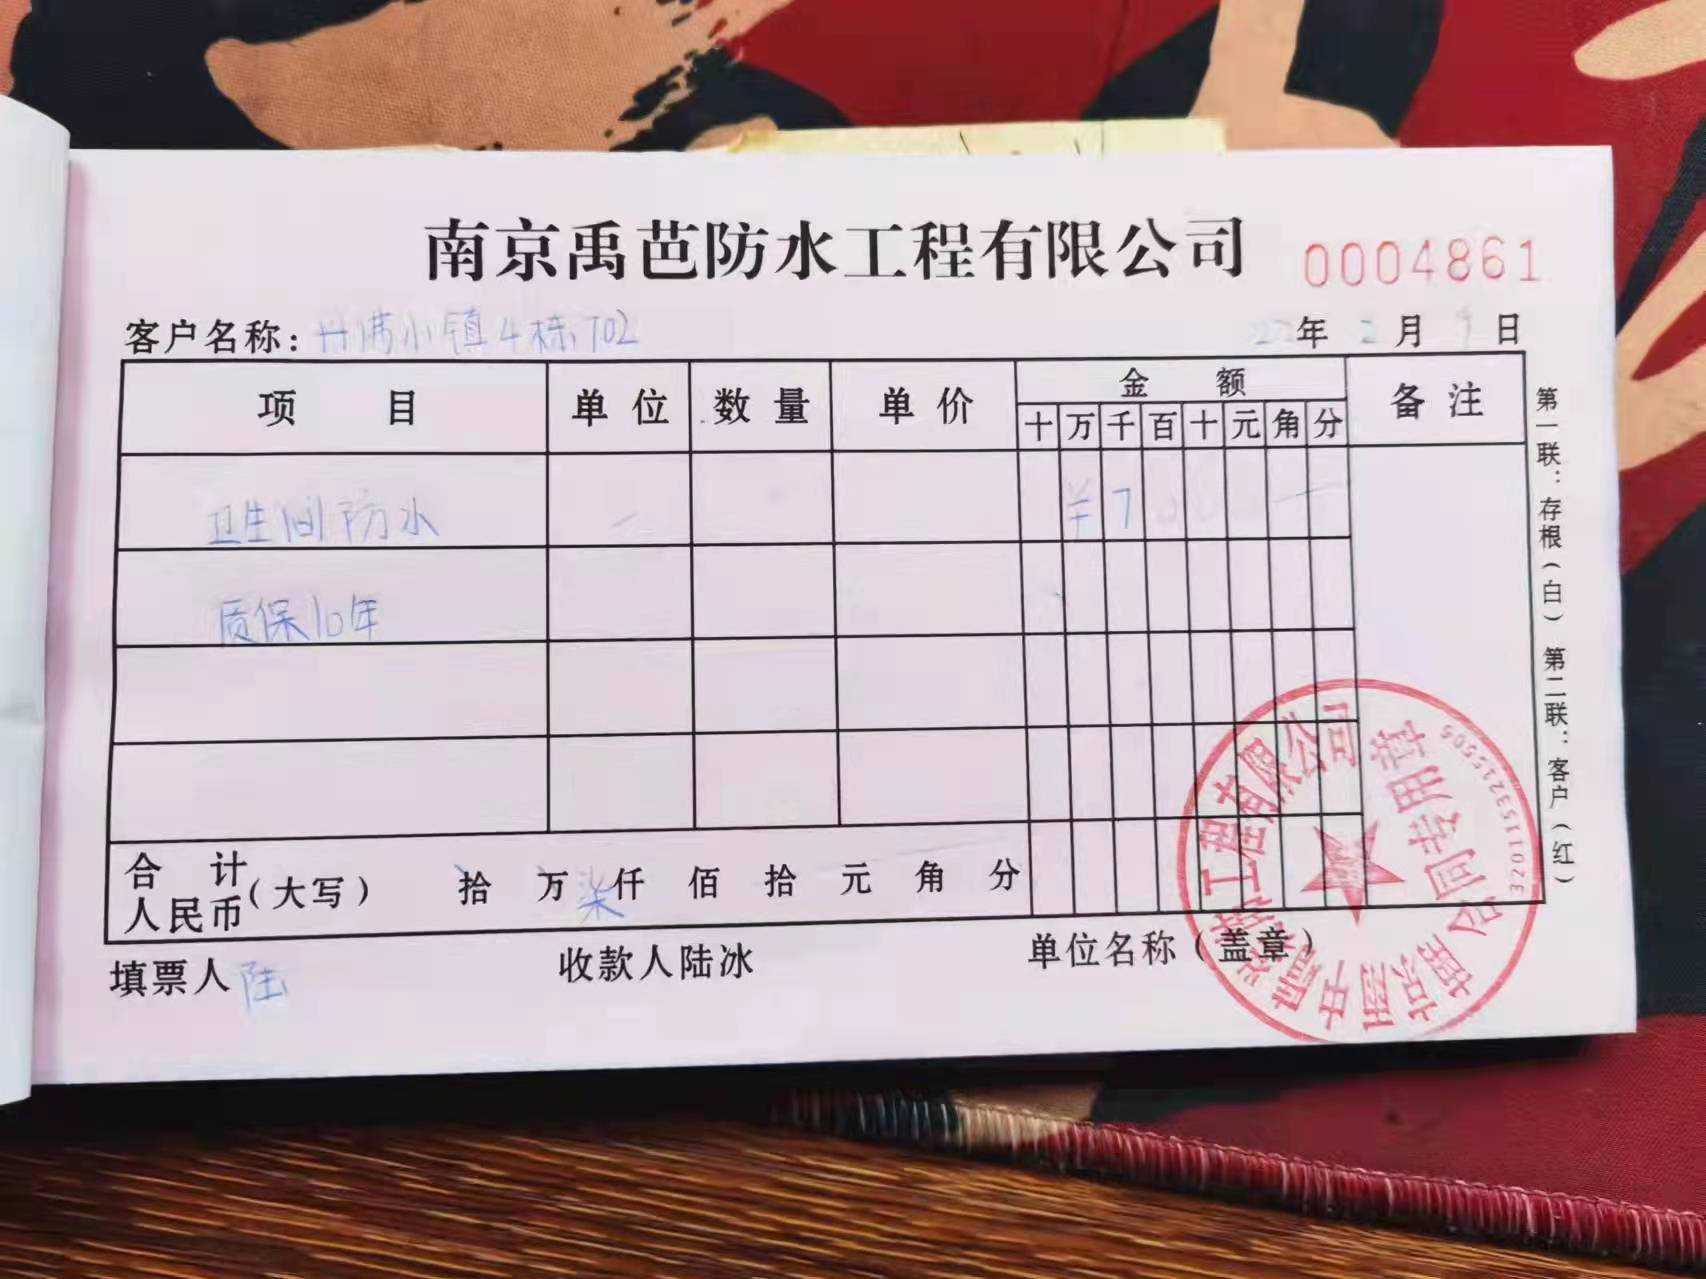 南京禹芭防水工程有限公司 0004861
客户名称: 丹满小镇4栋702 22年2月9日
项目 单位 数量 单价 金额 备注
十 万 千 百 十 元 角 分
卫生间防水 ¥7000
质保10年
合计人民币(大写) 拾 万 柒仟 佰 拾 元 角 分
填票人 陆 收款人陆冰 单位名称(盖章)
第一联:存根(白) 第二联:客户(红)
工程有限公司
合同专用章